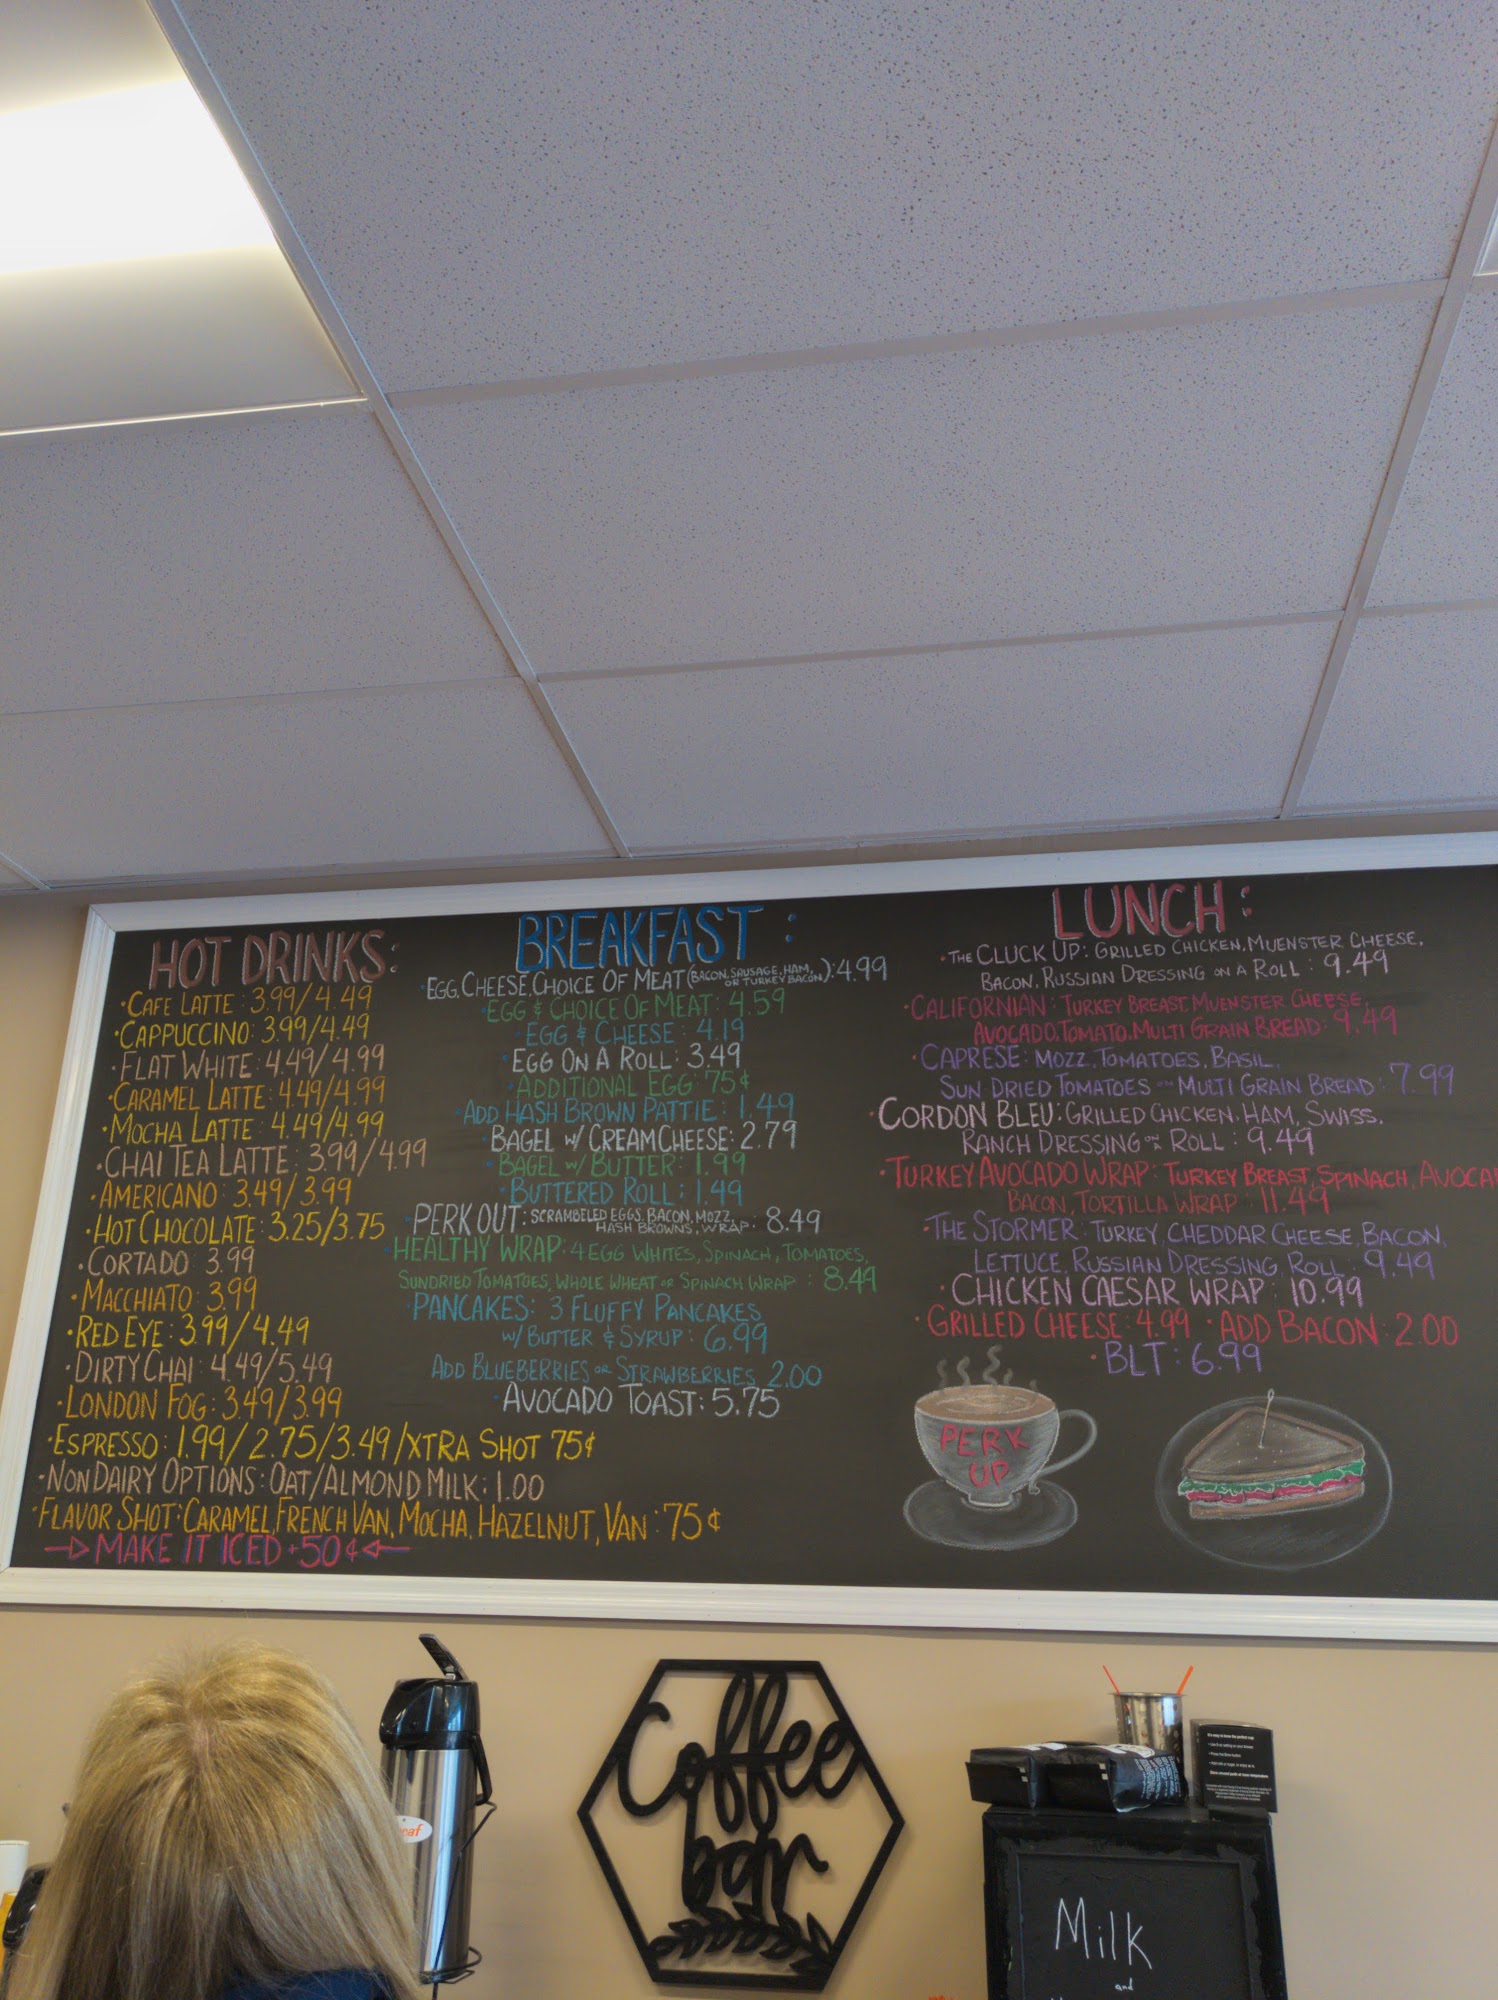 HOT DRINKS:
·CAFE LATTE: 3.99/4.49
·CAPPUCCINO: 3.99/4.49
·FLAT WHITE: 4.49/4.99
·CARAMEL LATTE: 4.49/4.99
·MOCHA LATTE: 4.49/4.99
·CHAI TEA LATTE: 3.99/4.99
·AMERICANO: 3.49/3.99
·HOT CHOCOLATE: 3.25/3.75
·CORTADO: 3.99
·MACCHIATO: 3.99
·RED EYE: 3.99/4.49
·DIRTY CHAI: 4.49/5.49
·LONDON FOG: 3.49/3.99
·ESPRESSO: 1.99/2.75/3.49/XTRA SHOT 75¢
·NON DAIRY OPTIONS: OAT/ALMOND MILK: 1.00
·FLAVOR SHOT: CARAMEL, FRENCH VAN, MOCHA, HAZELNUT, VAN: 75¢
MAKE IT ICED +50¢
BREAKFAST:
·EGG, CHEESE, CHOICE OF MEAT (BACON, SAUSAGE, HAM, OR TURKEY BACON): 4.99
·EGG & CHOICE OF MEAT: 4.59
·EGG & CHEESE: 4.19
·EGG ON A ROLL: 3.49
·ADDITIONAL EGG: 75¢
·ADD HASH BROWN PATTIE: 1.49
·BAGEL W/ CREAM CHEESE: 2.79
·BAGEL W/ BUTTER: 1.99
·BUTTERED ROLL: 1.49
·PERK OUT: SCRAMBLED EGGS, BACON, MOZZ, HASH BROWNS, WRAP: 8.49
·HEALTHY WRAP: 4 EGG WHITES, SPINACH, TOMATOES,
SUNDRIED TOMATOES, WHOLE WHEAT OR SPINACH WRAP: 8.49
·PANCAKES: 3 FLUFFY PANCAKES
W/ BUTTER & SYRUP: 6.99
ADD BLUEBERRIES OR STRAWBERRIES 2.00
·AVOCADO TOAST: 5.75
LUNCH:
·THE CLUCK UP: GRILLED CHICKEN, MUENSTER CHEESE,
BACON, RUSSIAN DRESSING ON A ROLL: 9.49
·CALIFORNIAN: TURKEY BREAST, MUENSTER CHEESE,
AVOCADO, TOMATO, MULTI GRAIN BREAD: 9.49
·CAPRESE: MOZZ, TOMATOES, BASIL,
SUN DRIED TOMATOES ON MULTI GRAIN BREAD: 7.99
·CORDON BLEU: GRILLED CHICKEN, HAM, SWISS,
RANCH DRESSING ON ROLL: 9.49
·TURKEY AVOCADO WRAP: TURKEY BREAST, SPINACH, AVOCA
BACON, TORTILLA WRAP: 11.49
·THE STORMER: TURKEY, CHEDDAR CHEESE, BACON,
LETTUCE, RUSSIAN DRESSING, ROLL: 9.49
·CHICKEN CAESAR WRAP: 10.99
·GRILLED CHEESE: 4.99 ·ADD BACON: 2.00
·BLT: 6.99
PERK
UP
Coffee
bar
Milk
and